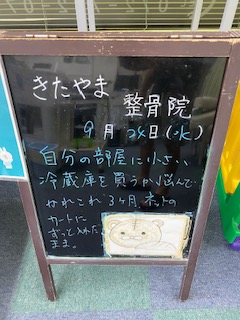 きたやま
整骨院
9月24日(水)
自分の部屋に小さい
冷蔵庫を買うか悩んで…
かれこれ3ヶ月、ネットの
カートに
ずっと入れた
まま。